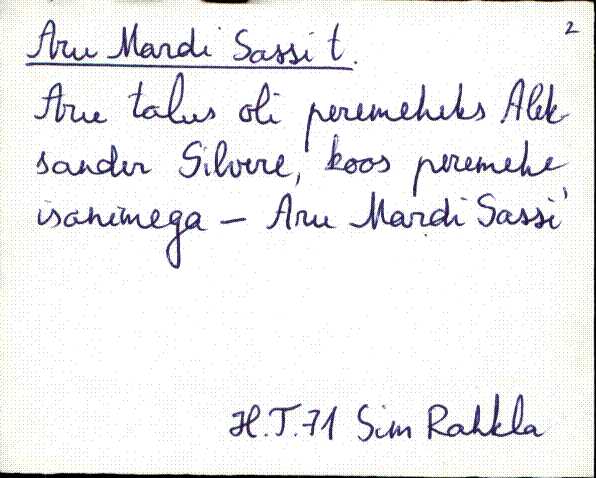 2
Aru Mardi Sassi t.
Aru talus oli peremeheks Alek-
sander Silvere, koos peremehe
isanimega – Aru Mardi Sassi
H.T.71 Sim Rahkla